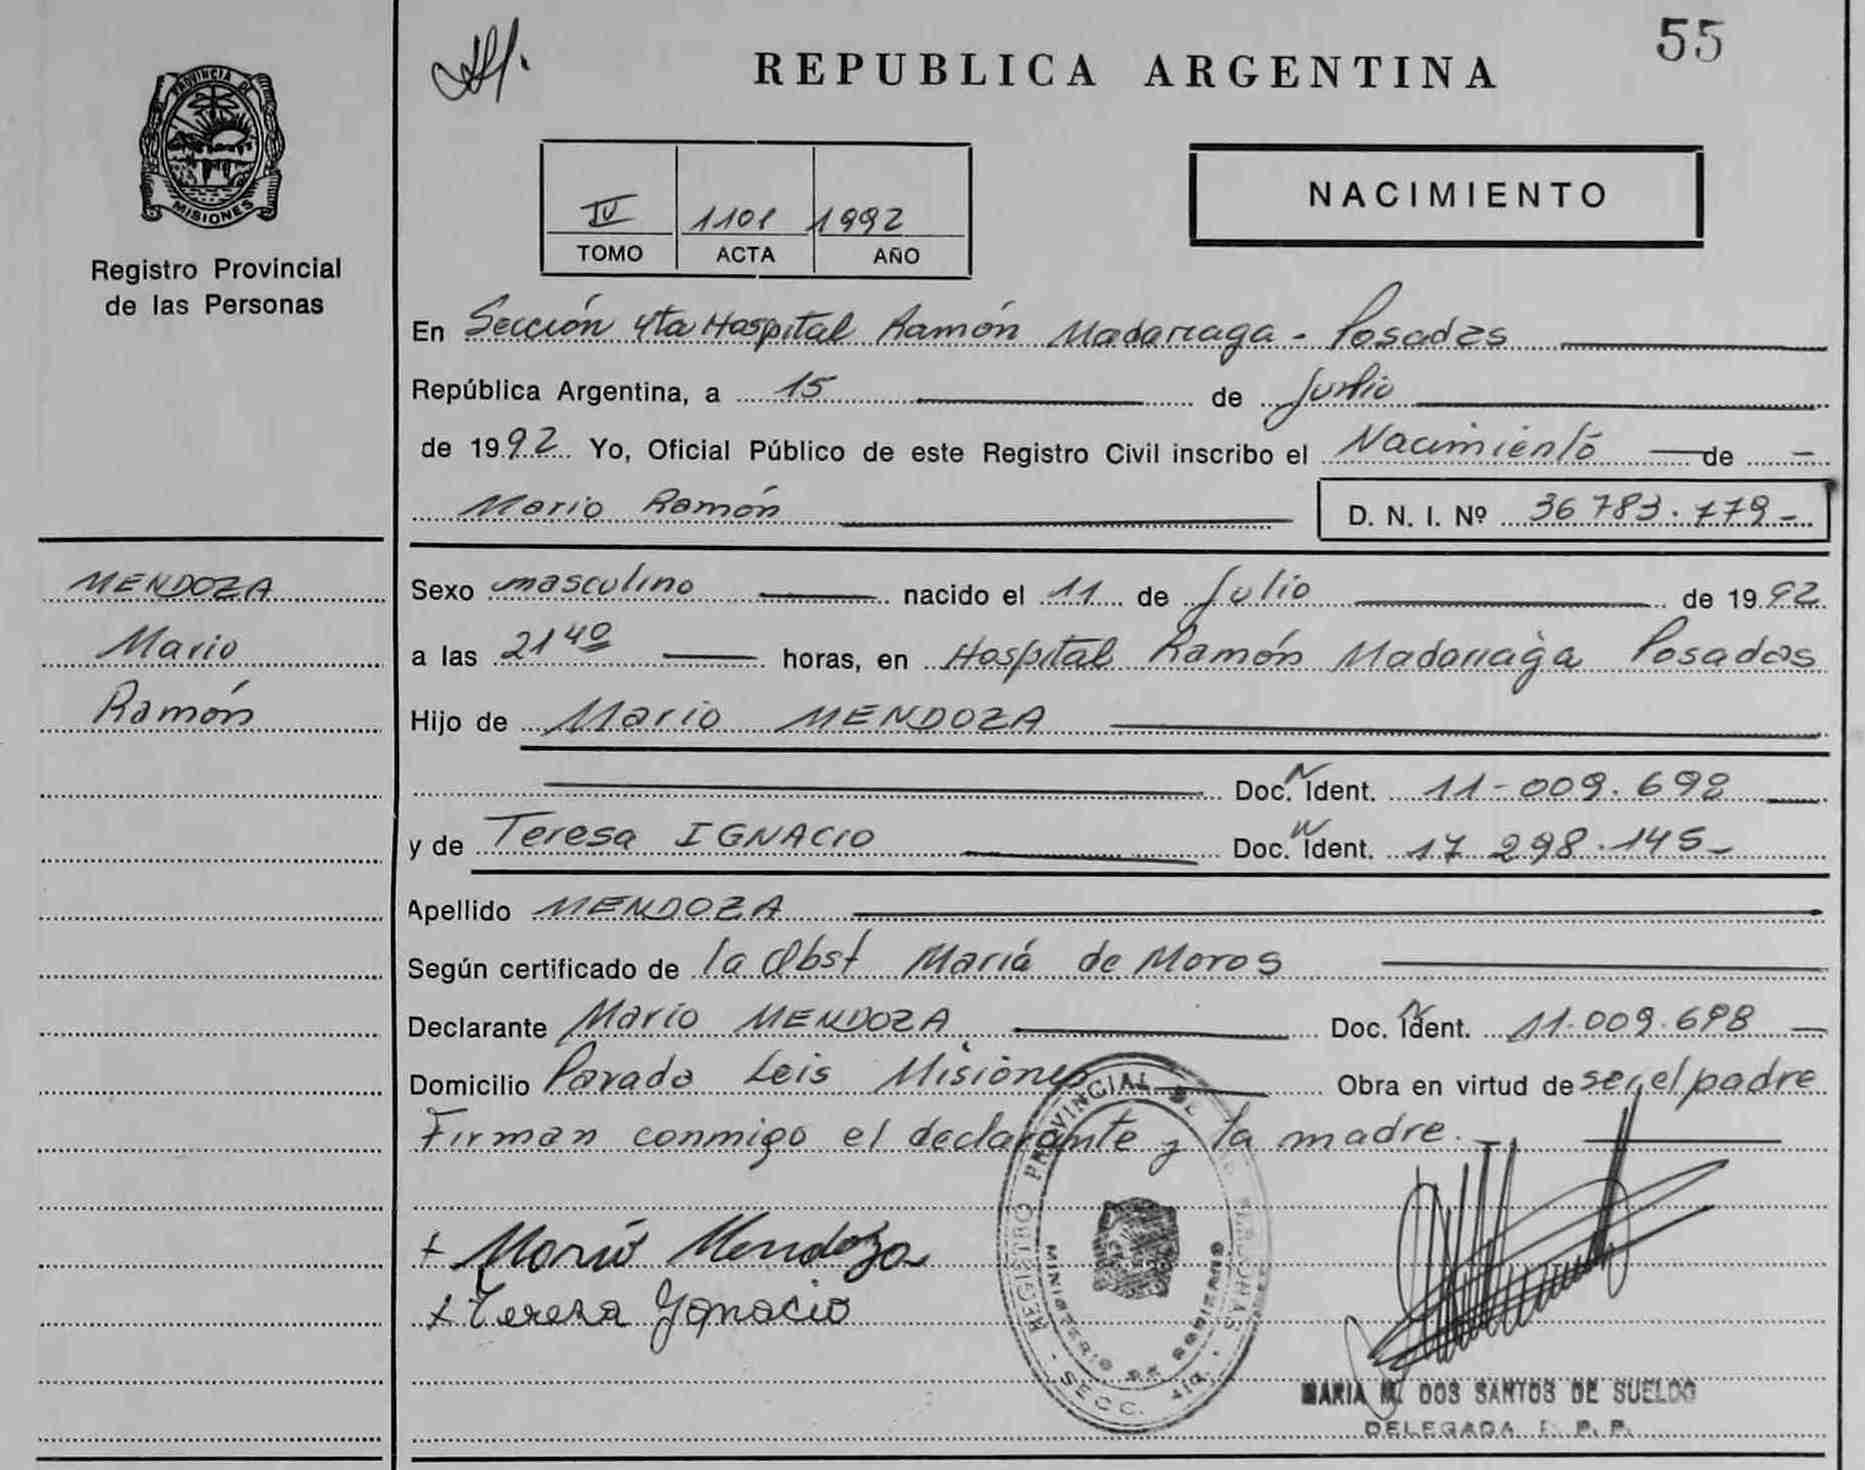 55
REPUBLICA ARGENTINA
PROVINCIA DE
MISIONES
Registro Provincial
de las Personas
IV 1101 1992
TOMO ACTA AÑO
NACIMIENTO
En Sección 4ta Hospital Ramón Madariaga - Posadas
República Argentina, a 15 de Julio
de 1992 Yo, Oficial Público de este Registro Civil inscribo el Nacimiento de -
Mario Ramón D. N. I. Nº 36 783.179-
MENDOZA
Mario
Ramón
Sexo masculino nacido el 11 de Julio de 1992
a las 21 40 horas, en Hospital Ramón Madariaga Posadas
Hijo de Mario MENDOZA
Doc. N Ident. 11-009.698
y de Teresa IGNACIO Doc. N Ident. 17 298.145-
Apellido MENDOZA
Según certificado de la Obst María de Moros
Declarante Mario MENDOZA Doc. N Ident. 11.009.698
Domicilio Parada Leis Misiones Obra en virtud de ser el padre
Firman conmigo el declarante y la madre.-
+ Mario Mendoza
x Teresa Ygnacio
REGISTRO PROVINCIAL DE LAS PERSONAS
MINISTERIO DE GOBIERNO
SECC. 4ta.
MARIA M. DOS SANTOS DE SUELDO
DELEGADA R. P. P.